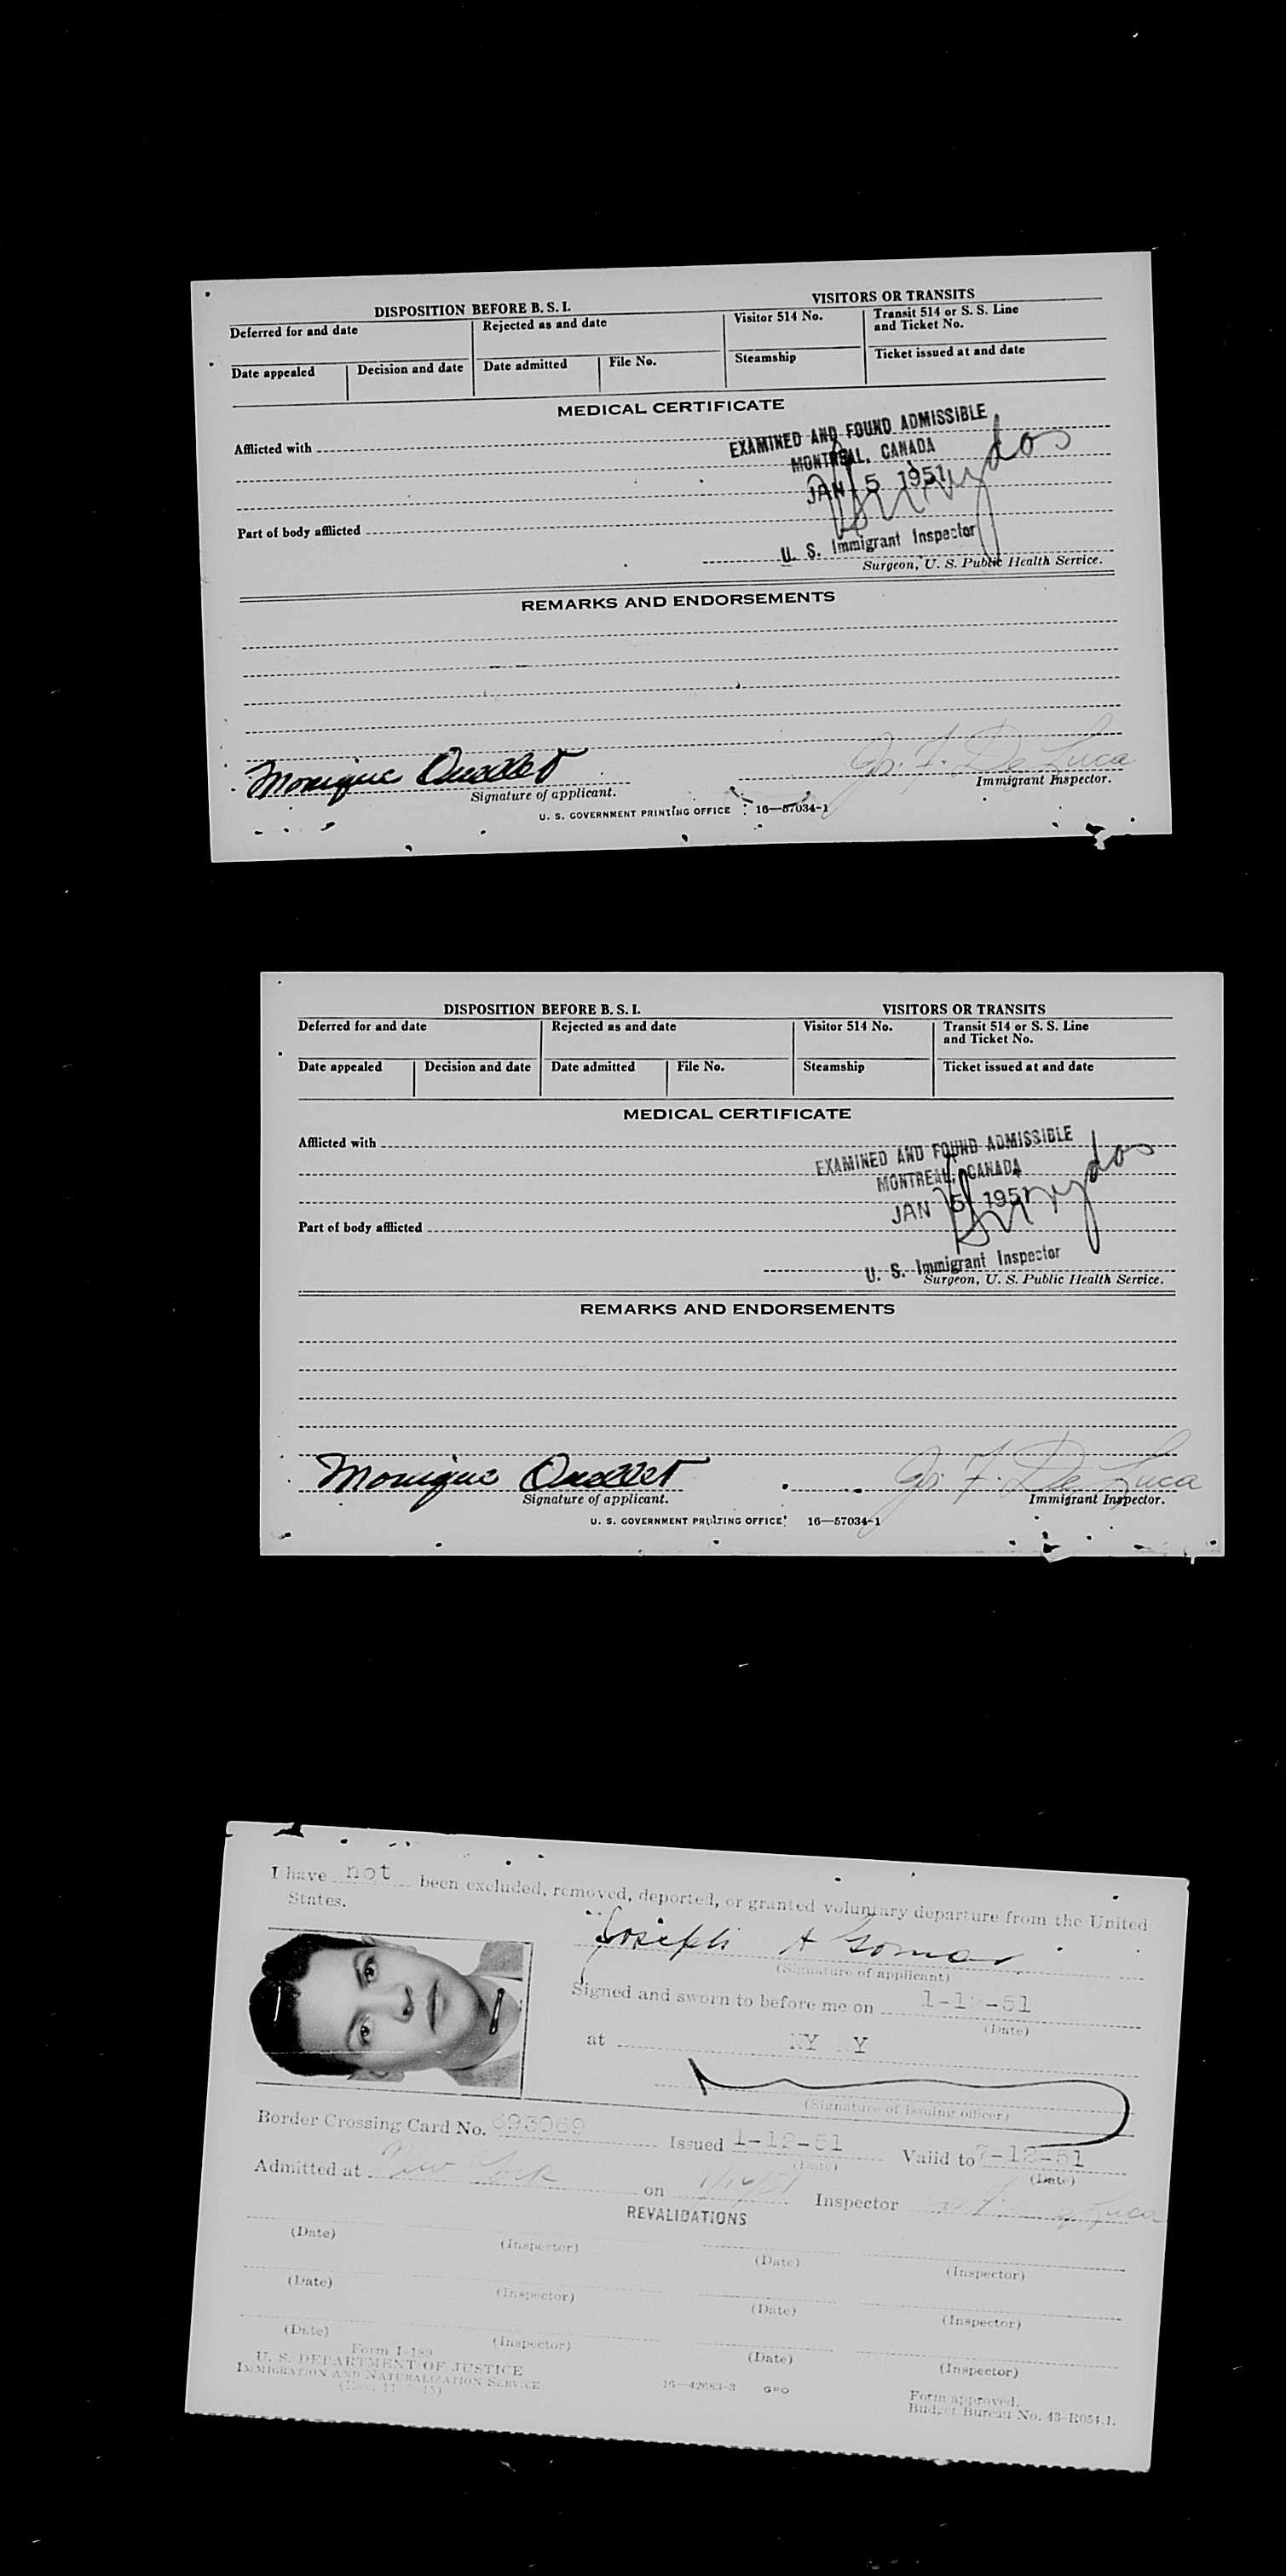 DISPOSITION BEFORE B. S. I. VISITORS OR TRANSITS
Deferred for and date Rejected as and date Visitor 514 No. Transit 514 or S. S. Line
and Ticket No.
Date appealed Decision and date Date admitted File No. Steamship Ticket issued at and date
MEDICAL CERTIFICATE
Afflicted with
EXAMINED AND FOUND ADMISSIBLE
MONTREAL, CANADA
JAN 5 1951
Part of body afflicted
U. S. Immigrant Inspector
Surgeon, U. S. Public Health Service.
REMARKS AND ENDORSEMENTS
Monique Ouellet Jos. F. De Luca
Signature of applicant. Immigrant Inspector.
U. S. GOVERNMENT PRINTING OFFICE 16—57034-1
DISPOSITION BEFORE B. S. I. VISITORS OR TRANSITS
Deferred for and date Rejected as and date Visitor 514 No. Transit 514 or S. S. Line
and Ticket No.
Date appealed Decision and date Date admitted File No. Steamship Ticket issued at and date
MEDICAL CERTIFICATE
Afflicted with
EXAMINED AND FOUND ADMISSIBLE
MONTREAL, CANADA
JAN 5 1951
Part of body afflicted
U. S. Immigrant Inspector
Surgeon, U. S. Public Health Service.
REMARKS AND ENDORSEMENTS
Monique Ouellet Jos. F. De Luca
Signature of applicant. Immigrant Inspector.
U. S. GOVERNMENT PRINTING OFFICE 16—57034-1
I have not been excluded, removed, deported, or granted voluntary departure from the United
States.
Joseph A
(Signature of applicant)
Signed and sworn to before me on 1-12-51
(Date)
at NY NY
(Signature of issuing officer)
Border Crossing Card No. 693969 Issued 1-12-51 Valid to 7-12-51
(Date) (Date)
Admitted at New York on 1/16/51 Inspector De Luca
REVALIDATIONS
(Date) (Inspector) (Date) (Inspector)
(Date) (Inspector) (Date) (Inspector)
(Date) (Inspector) (Date) (Inspector)
Form I-189
U. S. DEPARTMENT OF JUSTICE
IMMIGRATION AND NATURALIZATION SERVICE
16—42683-3 GPO
Form approved.
Budget Bureau No. 43-R054.1.